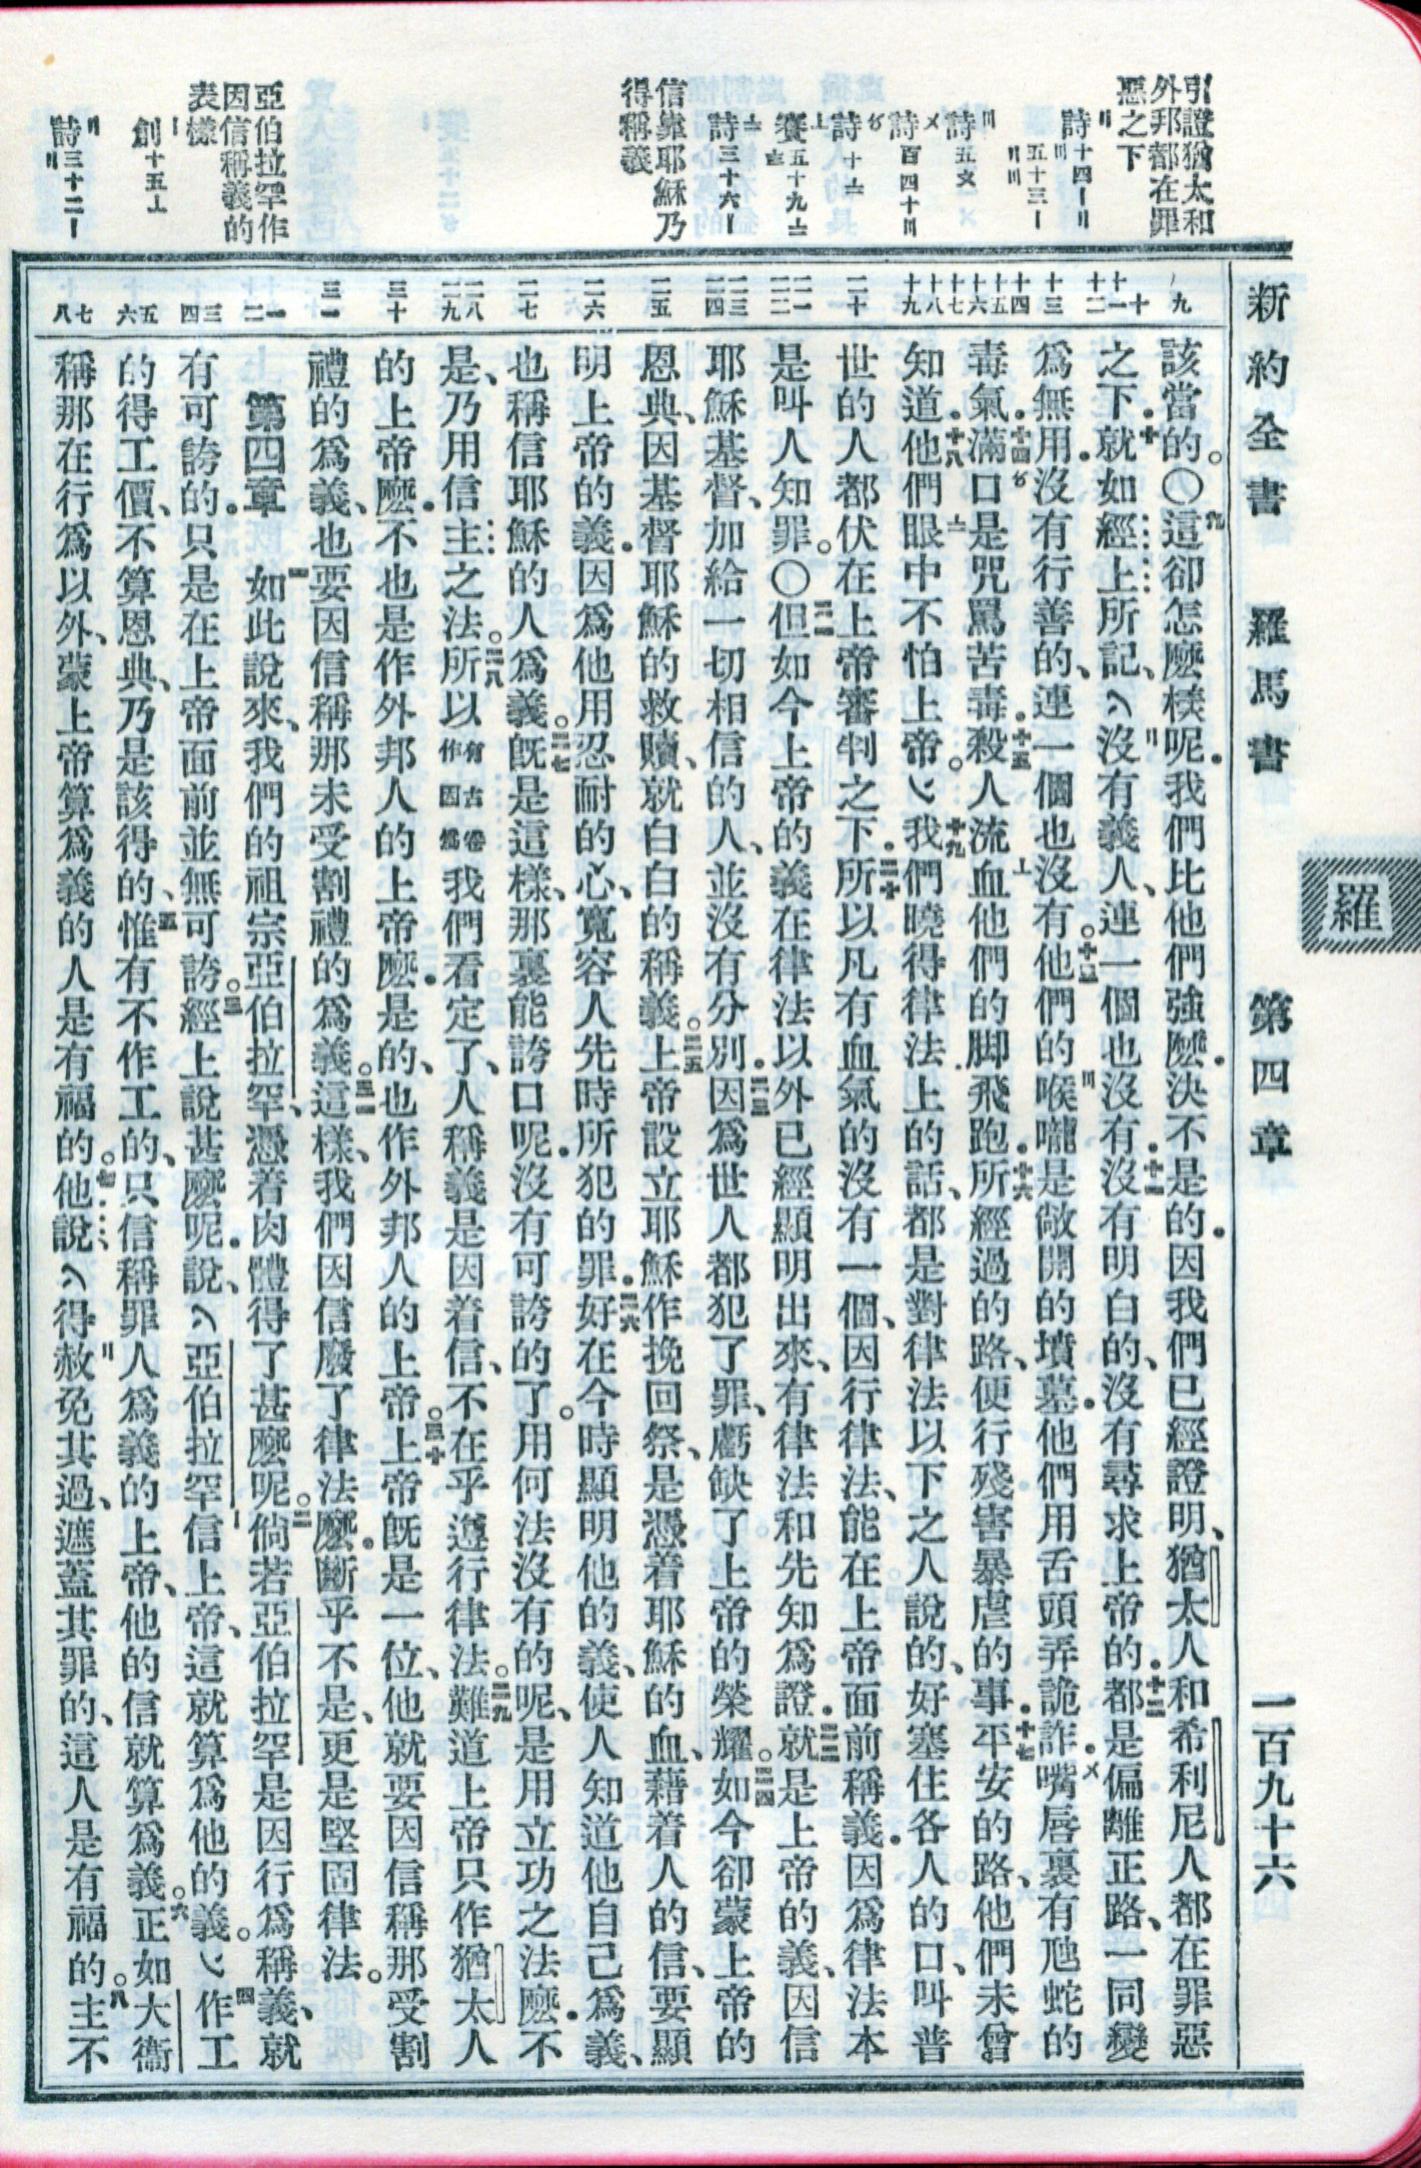 新約全書　羅馬書　第四章　一百九十六
羅
引證猶太和
外邦都在罪
惡之下
詩十四〡〢
五十三〡
詩五文
詩百四十〣
詩十
賽五十九
詩三十六〡
信靠耶穌乃
得稱義
亞伯拉罕作
因信稱義的
表樣
創十五
詩三十二〡
九
十
十一
十二
十三
十四
十五
十六
十七
十八
十九
二十
二一
二二
二三
二四
二五
二六
二七
二八
二九
三十
三一
一
二
三
四
五
六
七
八
該當的。〇九這卻怎麼樣呢．我們比他們強麼．決不是的．因我們已經證明、猶太人和希利尼人都在罪惡
之下．十就如經上所記、沒有義人、連一個也沒有．十一沒有明白的、沒有尋求上帝的．十二都是偏離正路、一同變
爲無用．沒有行善的、連一個也沒有。十三他們的喉嚨是敞開的墳墓．他們用舌頭弄詭詐．嘴唇裏有虺蛇的
毒氣．十四滿口是咒罵苦毒．十五殺人流血他們的脚飛跑．十六所經過的路、便行殘害暴虐的事．十七平安的路、他們未曾
知道．十八他們眼中不怕上帝。十九我們曉得律法上的話、都是對律法以下之人說的、好塞住各人的口、叫普
世的人都伏在上帝審判之下．二十所以凡有血氣的沒有一個、因行律法、能在上帝面前稱義．因爲律法本
是叫人知罪。〇二一但如今上帝的義在律法以外已經顯明出來、有律法和先知爲證．二二就是上帝的義、因信
耶穌基督、加給一切相信的人、並沒有分別．二三因爲世人都犯了罪、虧缺了上帝的榮耀。二四如今卻蒙上帝的
恩典、因基督耶穌的救贖、就白白的稱義。二五上帝設立耶穌作挽回祭、是憑着耶穌的血、藉着人的信、要顯
明上帝的義．因爲他用忍耐的心、寬容人先時所犯的罪．二六好在今時顯明他的義、使人知道他自己爲義、
也稱信耶穌的人爲義。二七旣是這樣、那裏能誇口呢．沒有可誇的了。用何法沒有的呢、是用立功之法麼．不
是、乃用信主之法。二八所以有古卷作因爲我們看定了、人稱義是因着信、不在乎遵行律法。二九難道上帝只作猶太人
的上帝麼．不也是作外邦人的上帝麼．是的、也作外邦人的上帝。三十上帝旣是一位、他就要因信稱那受割
禮的爲義、也要因信稱那未受割禮的爲義。三一這樣、我們因信廢了律法麼．斷乎不是、更是堅固律法。
第四章　一如此說來、我們的祖宗亞伯拉罕、憑着肉體得了甚麼呢。二倘若亞伯拉罕是因行爲稱義、就
有可誇的．只是在上帝面前並無可誇。三經上說甚麼呢．說、亞伯拉罕信上帝、這就算爲他的義。四作工
的得工價、不算恩典、乃是該得的、五惟有不作工的、只信稱罪人爲義的上帝、他的信就算爲義。六正如大衞
稱那在行爲以外、蒙上帝算爲義的人是有福的。七他說、得赦免其過、遮蓋其罪的、這人是有福的。八主不